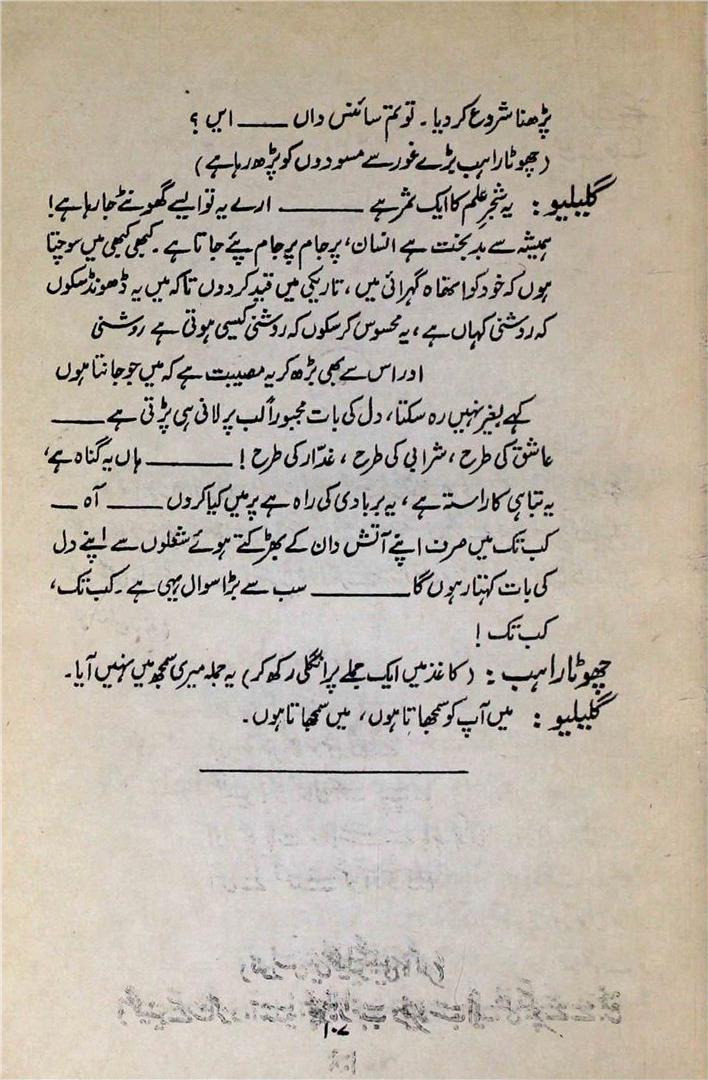 پڑھنا شروع کر دیا۔ تو تم سائنس داں ـــــ ایں ؟
(چھوٹا راہب بڑے غور سے مسودوں کو پڑھ رہا ہے)
گلیلیو : یہ شجرِ علم کا ایک ثمر ہے ـــــ ارے یہ تو ایسے گھونٹے جا رہا ہے!
ہمیشہ سے بدبخت ہے انسان، پر جام پر جام پئے جاتا ہے۔ کبھی کبھی میں سوچتا
ہوں کہ خود کو اتھاہ گہرائی میں، تاریکی میں قید کر دوں تاکہ میں یہ ڈھونڈ سکوں
کہ روشنی کہاں ہے، یہ محسوس کر سکوں کہ روشنی کیسی ہوتی ہے روشنی
اور اس سے بھی بڑھ کر یہ مصیبت ہے کہ میں جو جانتا ہوں
کہے بغیر نہیں رہ سکتا، دل کی بات مجبوراً لب پر لانی ہی پڑتی ہے ـــــ
عاشق کی طرح، شرابی کی طرح، غدّار کی طرح! ـــــ ہاں یہ گناہ ہے،
یہ تباہی کا راستہ ہے، یہ بربادی کی راہ ہے پر میں کیا کروں ـــــ آہ ـــ
کب تک میں صرف اپنے آتش دان کے بھڑکتے ہوئے شعلوں سے اپنے دل
کی بات کہتا رہوں گا ـــــ سب سے بڑا سوال یہی ہے۔ کب تک،
کب تک !
چھوٹا راہب : (کاغذ میں ایک جملے پر انگلی رکھ کر) یہ جملہ میری سمجھ میں نہیں آیا۔
گلیلیو : میں آپ کو سمجھاتا ہوں، میں سمجھاتا ہوں۔